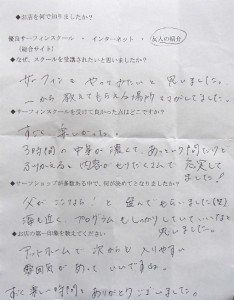 ◆お店を何で知りましたか?
優良サーフィンスクール ・ インターネット ・ 友人の紹介
(総合サイト)
◆なぜ、スクールを受講されたいと思いましたか?
サーフィンをやってみたいと思いました。
一から教えてもらえる場所をさがしてました。
◆サーフィンスクールを受けて良かった点はどこですか?
すごく楽しかった!
3時間の中身が濃くて、あっという間だったけど
ふりかえると内容がもりだくさんで充実して
ました!!
◆サーフショップが多数ある中で、何が決めてとなりましたか?
父が「ここなら!」と選んでもらいました(笑)
海も近く、プログラムもしっかりしていて、いいなと
思いました。
◆お店の第一印象を教えてください
アットホームで次からも入りやすい
雰囲気があっていいですね。
すごく楽しい時間をありがとうございました。